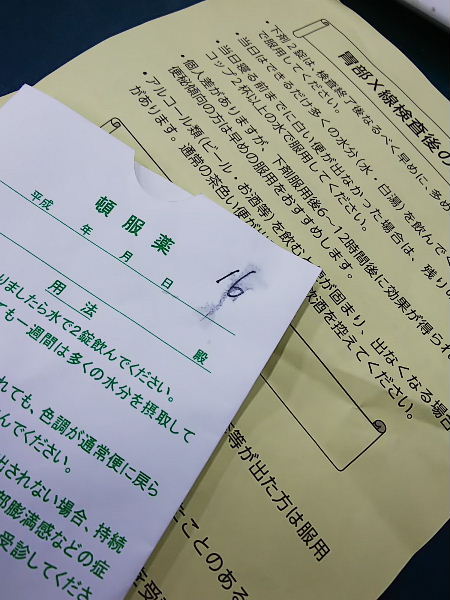 胃部X線検査後の
・下剤2錠は、検査終了後なるべく早めに、多め
で服用してください。
・当日はできるだけ多くの水分(水・白湯)を飲んで
・当日寝る前までに白い便が出なかった場合は、残り
コップ2杯以上の水で服用してください。
・個人差がありますが、下剤服用後6~12時間後に効果が得られ
便秘傾向の方は早めの服用をおすすめします。
・アルコール類(ビール・お酒等)を飲む
が固まり、出なくなる場合
があります。通常の茶色い便が
飲酒を控えてください。
等が出た方は服用
たことのある
頓服薬
平成 年 月 日
16
殿
用法
りましたら水で2錠飲んでください。
ても一週間は多くの水分を摂取して
れても、色調が通常便に戻ら
んでください。
出されない場合、持続
部膨満感などの症
受診してくださ